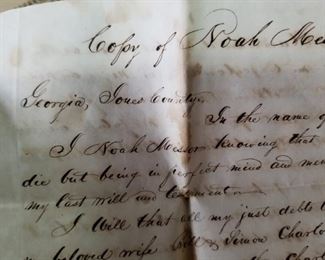 Copy of Noah Mes
Georgia, Jones County
In the name of
I Noah Messer knowing that
die but being in perfect mind and mem
my last will and testament
I Will that all my just debts b
beloved wife